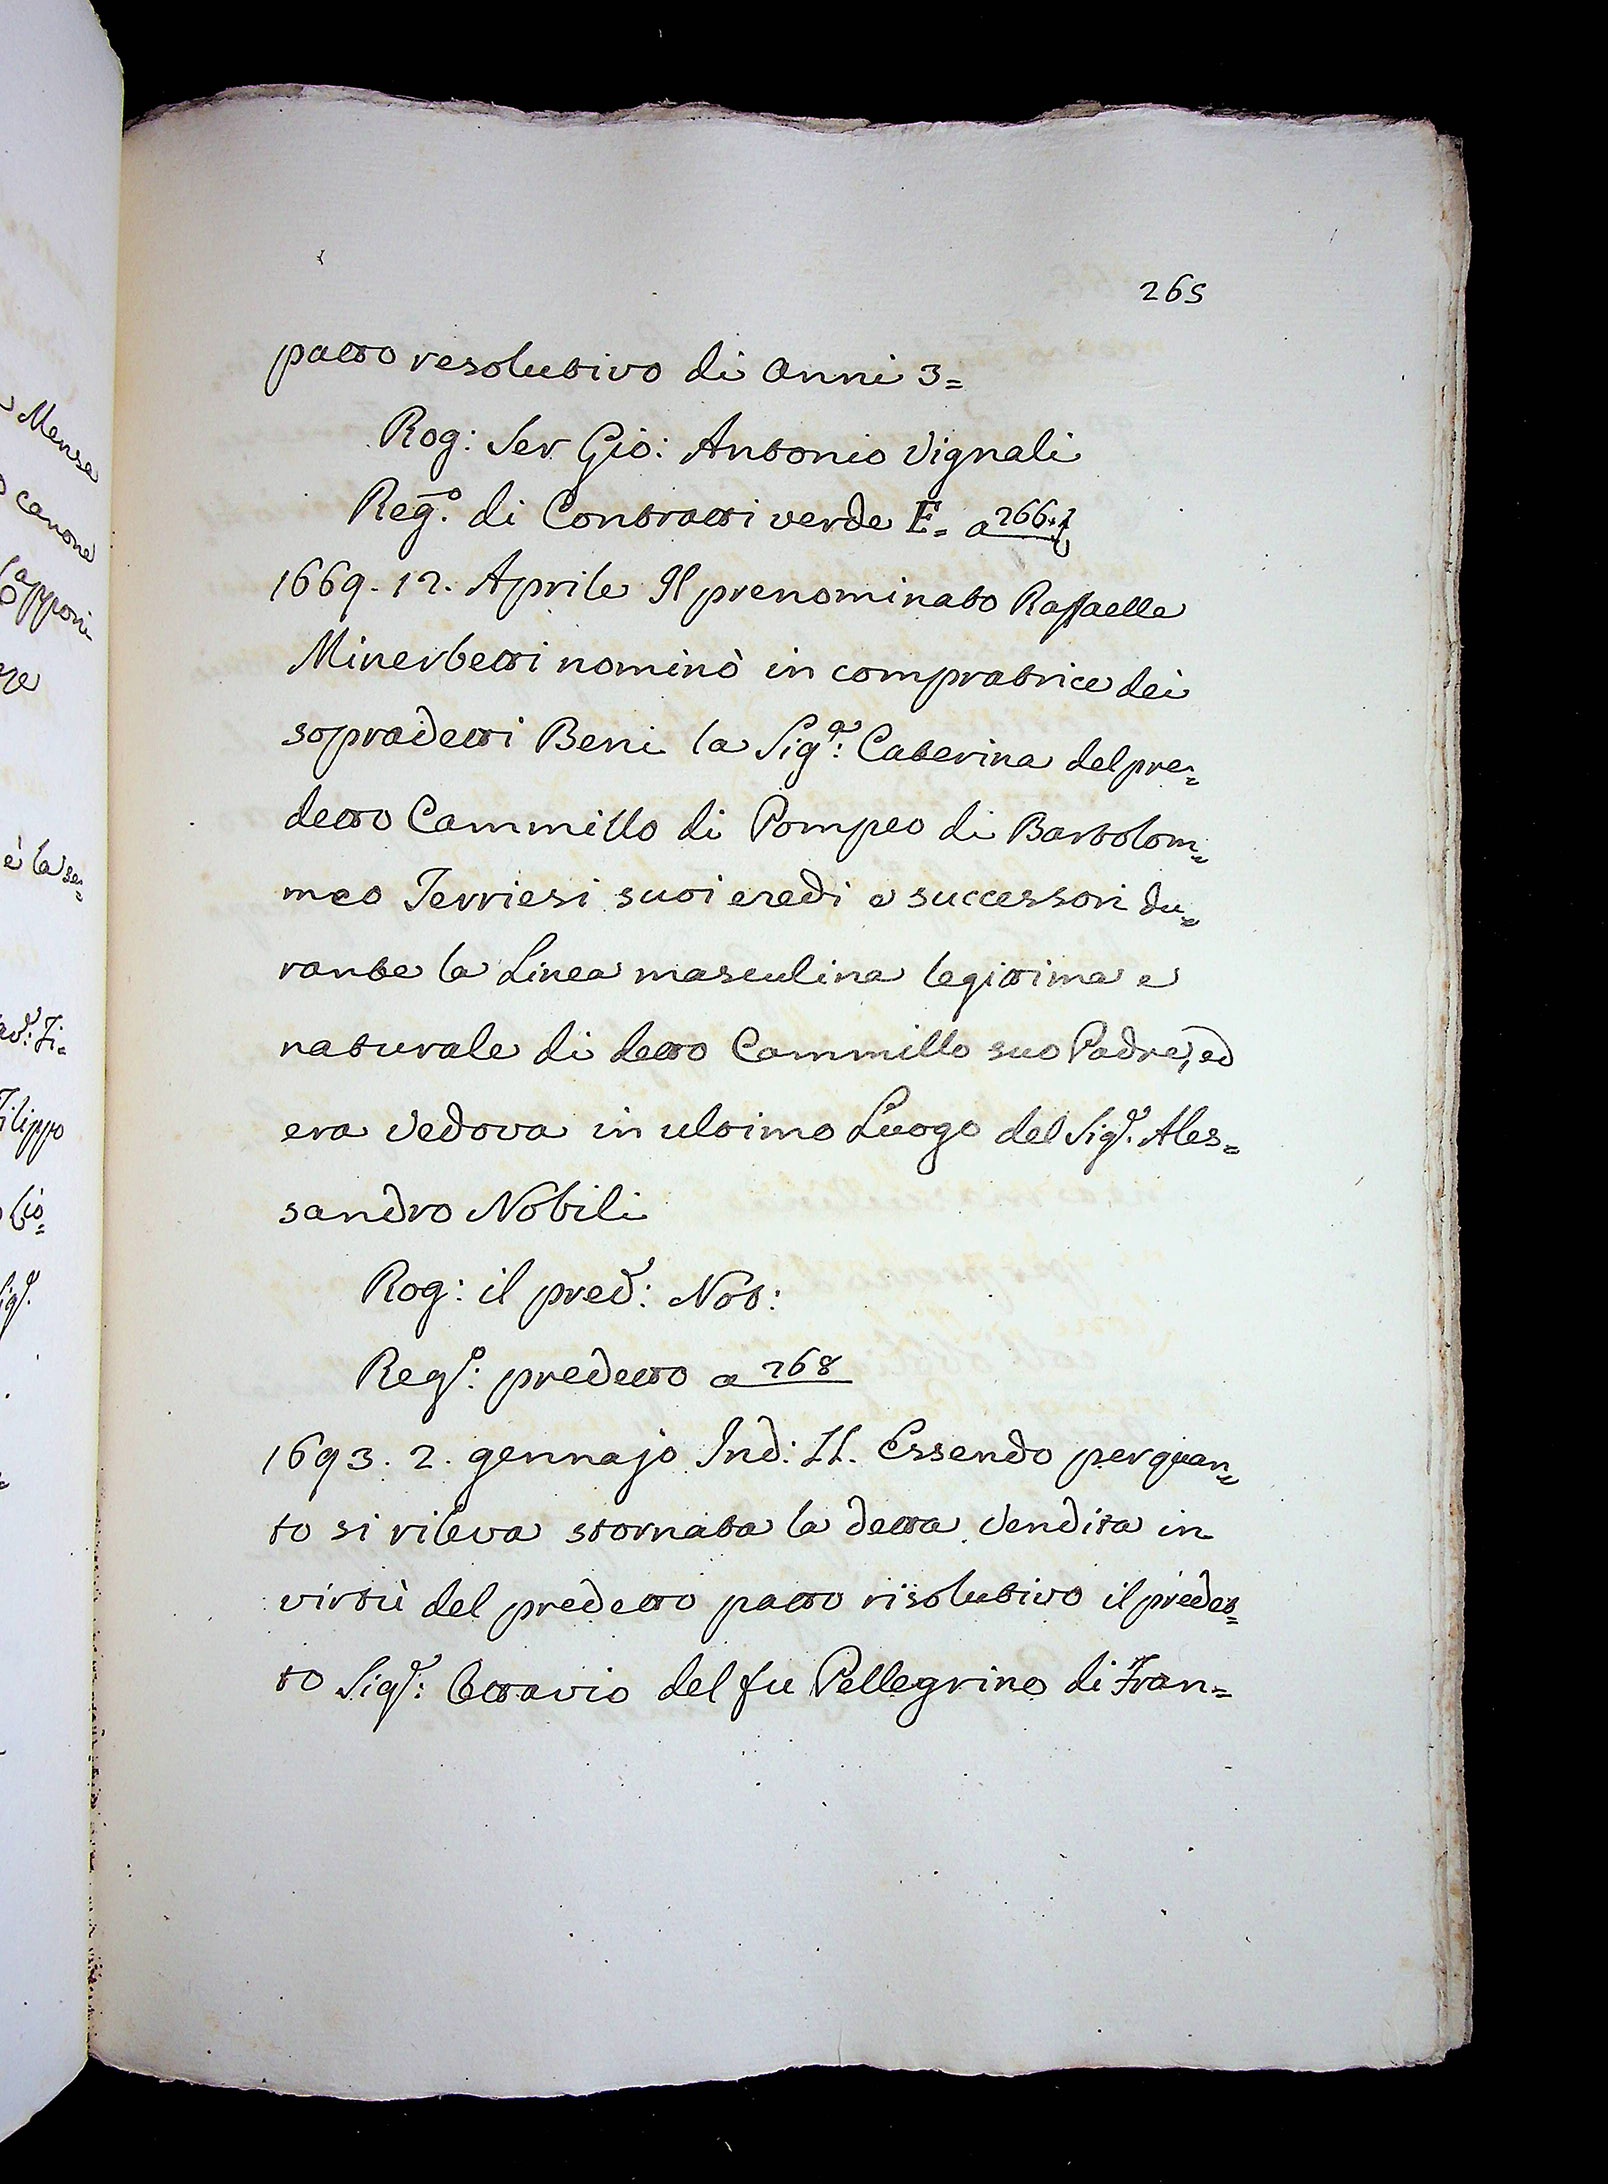 265
patto resolutivo di Anni 3=
Rog: Ser Gio: Antonio Vignali
Reg.º di Contratti verde E= a 266.t
1669. 12. Aprile Il prenominato Raffaelle
Minerbetti nominò in compratrice dei
sopradetti Beni la Sig.ª: Caterina del pre=
detto Cammillo di Pompeo di Bartolom=
meo Terriesi suoi eredi e successori du=
rante la Linea masculina legittima e
naturale di detto Cammillo suo Padre, ed
era Vedova in ultimo Luogo del Sig.r Ales=
sandro Nobili
Rog: il pred: Not:
Reg.º: predetto a 268
1693. 2. gennajo Ind: II. Essendo per quan=
to si rileva stornata la detta Vendita in
virtù del predetto patto risolutivo il predet=
to Sig.r: Ottavio del fu Pellegrino di Fran=
Mense
canone
è la se=
Filippo
Sig.r